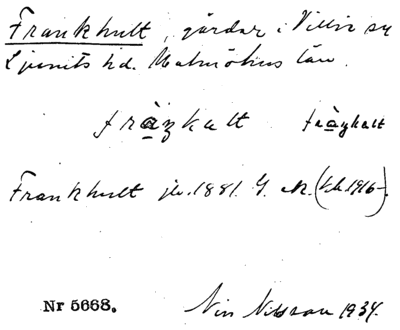 Frankhult, gårdar i Villie sn
Ljunits hd. Malmöhus län.
fràŋkalt fràŋkalt
Frankhult jb. 1881. G. K. (kb. 1916-).
Nr 5668. Nils Nilsson 1934.